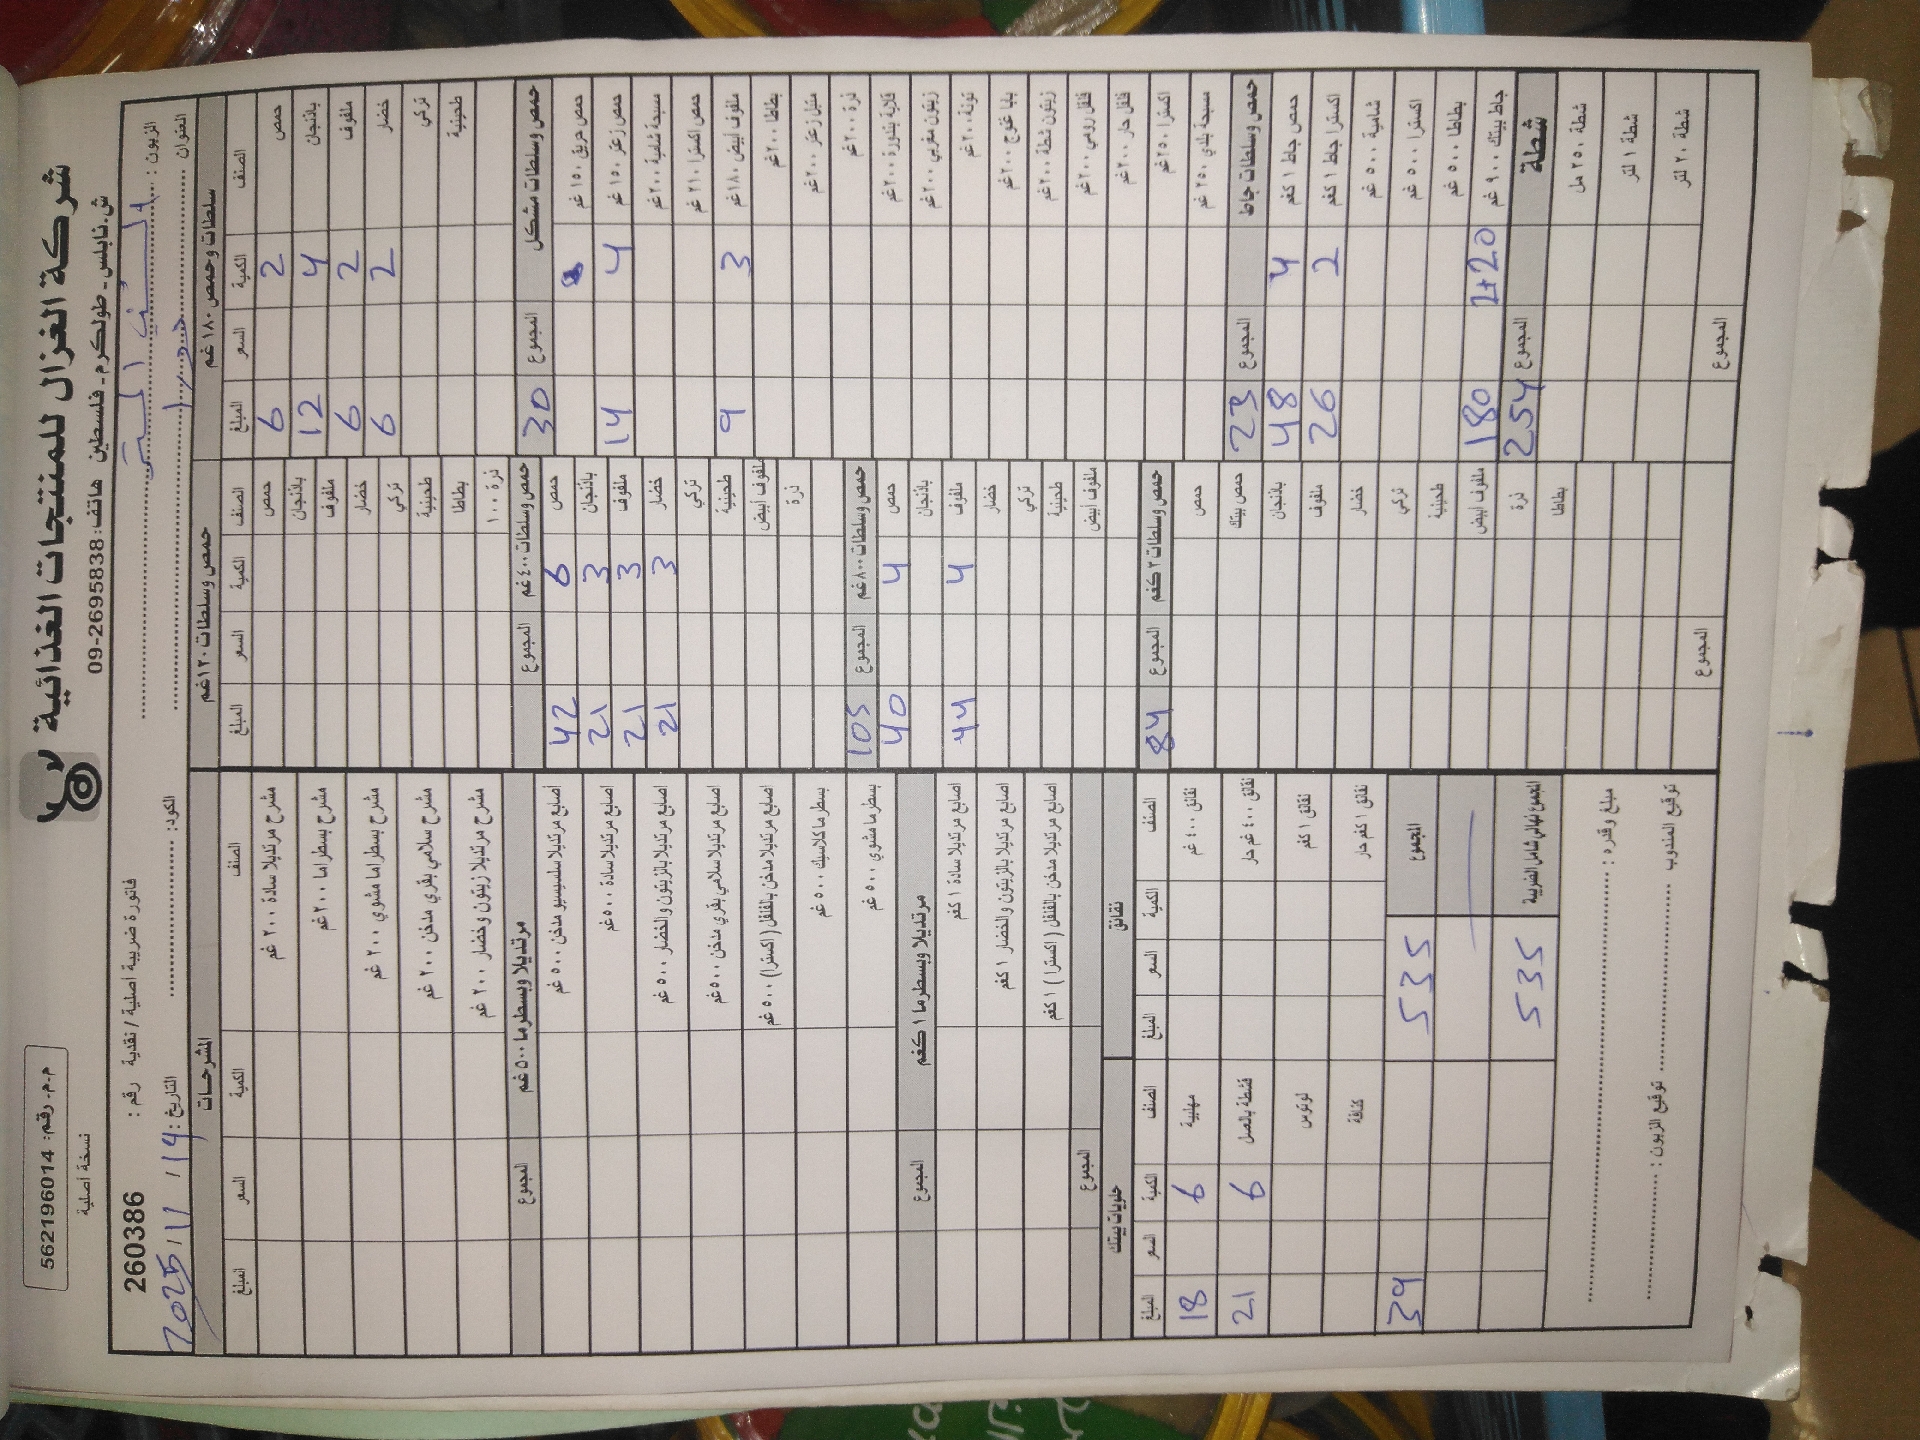 شركة الغزال للمنتجات الغذائية
ش.نابلس - طولكرم - فلسطين هاتف: 09-2695838
م.م. رقم: 562196014
نسخة أصلية
فاتورة ضريبية اصلية / نقدية رقم : 260386
الزبون :
العنوان
الكود:
التاريخ: 14 / 11 / 2025
سلطات وحمص ١٨٠غم
الصنف الكمية السعر المبلغ
حمص 2 6
باذنجان 4 12
ملفوف 2 6
خضار 2 6
تركي
طحينية
حمص وسلطات مشكل المجموع 30
حمص حريق ١٥٠ غم
حمص زعتر ١٥٠ غم 4 14
مسبحة شامية ٢٠٠غم
حمص اكسترا ٢١٠ غم
ملفوف أبيض ١٨٠غم 3 9
بطاطا ٢٠٠غم
متبل زعتر ٢٠٠غم
ذرة ٢٠٠غم
قلاية بندورة ٢٠٠غم
زيتون مغربي ٢٠٠غم
تونة ٢٠٠غم
بابا غنوج ٢٠٠غم
زيتون شطة ٢٠٠غم
فلفل رومي ٢٠٠غم
فلفل حار ٢٠٠غم
اكسترا ٢٥٠غم
مسبحة بلدي ٢٥٠غم
حمص وسلطات جاط المجموع 23
حمص جاط ١ كغم 4 48
اكسترا جاط ١ كغم 2 26
شامية ٥٠٠ غم
اكسترا ٥٠٠ غم
بطاطا ٥٠٠ غم
جاط بيتك ٩٠٠ غم 2+20 180
شطة المجموع 254
شطة ٢٥٠ مل
شطة ١ لتر
شطة ٢٠ لتر
المجموع
حمص وسلطات ١٢٠غم
الصنف الكمية السعر المبلغ
حمص
باذنجان
ملفوف
خضار
تركي
طحينية
بطاطا
ذرة ١٠٠
حمص وسلطات ٤٠٠ غم المجموع
حمص 6 42
باذنجان 3 21
ملفوف 3 21
خضار 3 21
تركي
طحينية
ملفوف أبيض
ذرة
حمص وسلطات ٨٠٠غم المجموع 105
حمص 4 40
باذنجان
ملفوف 4 44
خضار
تركي
طحينية
ملفوف أبيض
حمص وسلطات ٣ كغم المجموع 84
حمص
حمص بيتك
باذنجان
ملفوف
خضار
تركي
طحينية
ملفوف أبيض
ذرة
بطاطا
المجموع
المشرحات
الصنف الكمية السعر المبلغ
مشرح مرتديلا سادة ٢٠٠ غم
مشرح بسطراما ٢٠٠غم
مشرح بسطراما مشوي ٢٠٠ غم
مشرح سلامي بقري مدخن ٢٠٠ غم
مشرح مرتديلا زيتون وخضار ٢٠٠ غم
مرتديلا وبسطرما ٥٠٠غم المجموع
اصابع مرتديلا سلسيسيو مدخن ٥٠٠ غم
اصابع مرتديلا سادة ٥٠٠غم
اصابع مرتديلا بالزيتون والخضار ٥٠٠ غم
اصابع مرتديلا سلامي بقري مدخن ٥٠٠غم
اصابع مرتديلا مدخن بالفلفل ( اكسترا) ٥٠٠ غم
بسطرما كلاسيك ٥٠٠ غم
بسطرما مشوي ٥٠٠ غم
مرتديلا وبسطرما ١ كغم المجموع
اصابع مرتديلا سادة ١ كغم
اصابع مرتديلا بالزيتون والخضار ١ كغم
اصابع مرتديلا مدخن بالفلفل ( اكسترا ) ١ كغم
المجموع
نقانق
الصنف الكمية السعر المبلغ
نقانق ٤٠٠ غم
نقانق ٤٠٠ غم حار
نقانق ١ كغم
نقانق ١ كغم حار
المجموع 535
المجموع نهائي شامل الضريبة 535
حلويات بيتك
الصنف الكمية السعر المبلغ
مهلبية 6 18
قشطة بالعسل 6 21
لوتوس
كنافة
39
مبلغ وقدره :
توقيع المندوب
توقيع الزبون :